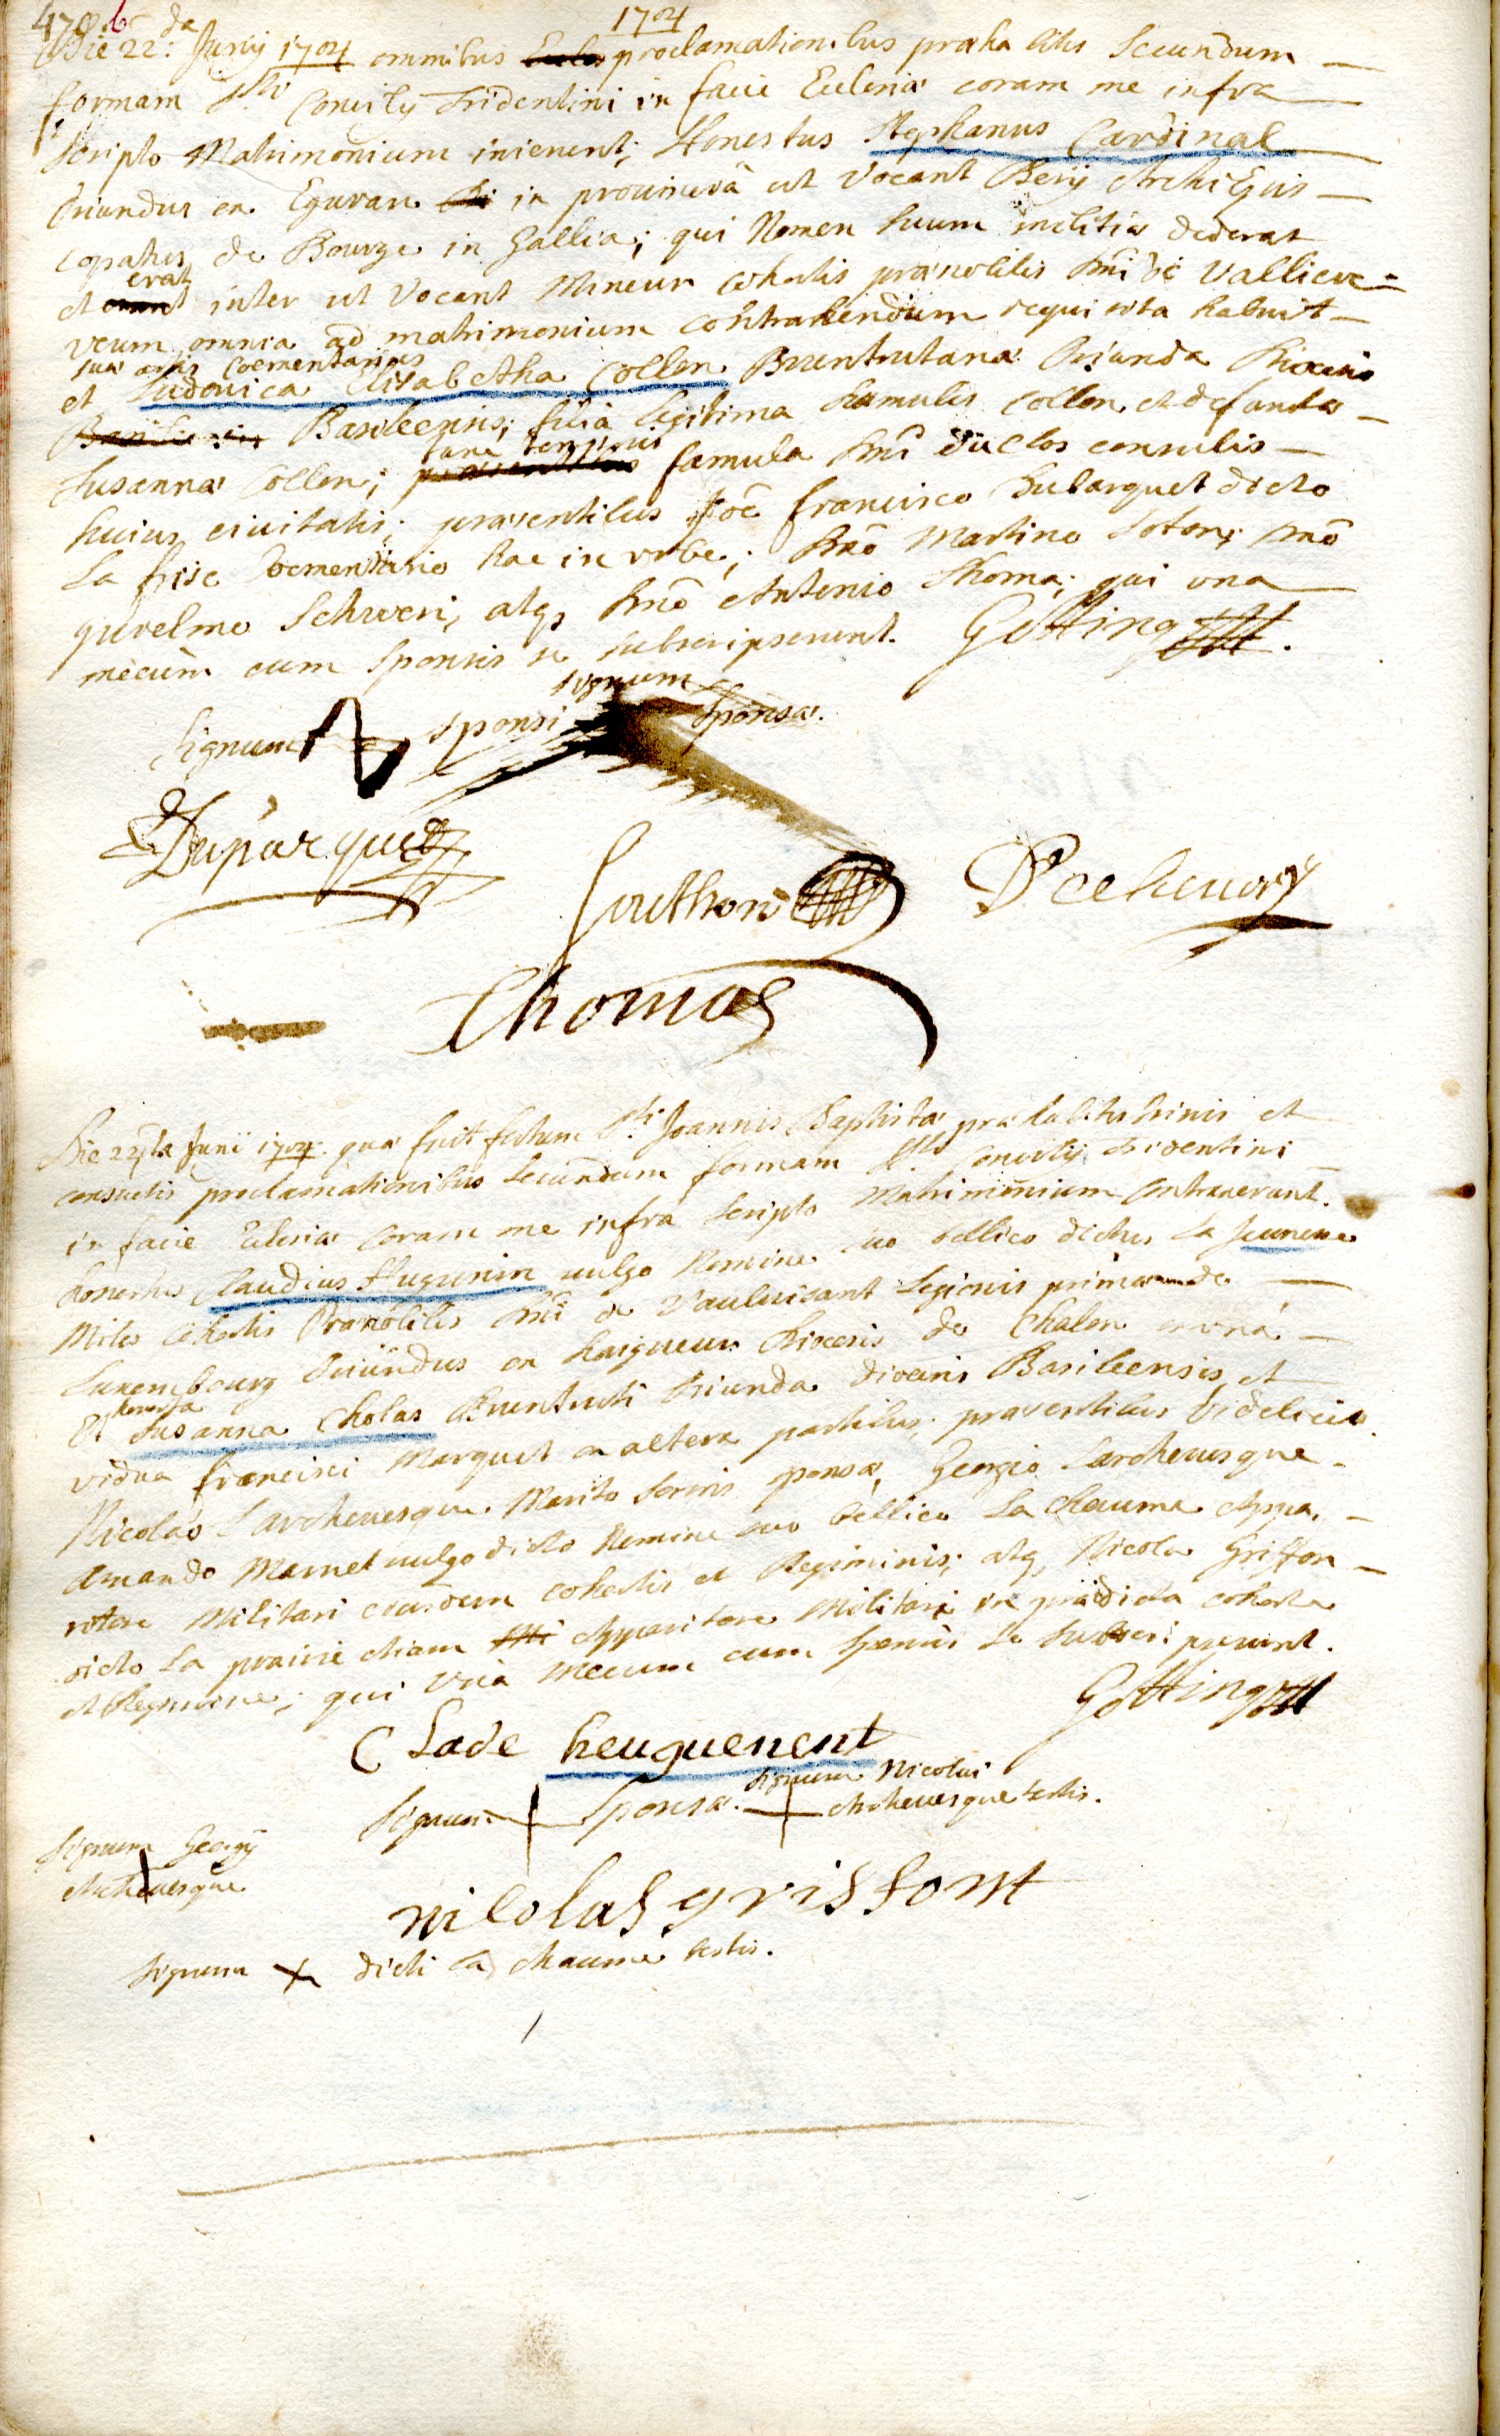 470 b
1704
Die 22: da Junÿ 1704 omnibus proclamationibus præha bitis Secundum
formam Sti Concilÿ Tridentini in facie Eclesiæ coram me infra
scripto Matrimonium inierunt; Honestus Stephanus Cardinal
Oriundus ex Eguran in provincia ut Vocant Berÿ ArchiEpis
copatus de Bourge in Gallia; qui Nomen suum militiæ dederat
et erat inter ut Vocant Mineurs cohortis prænobilis Dni de Valliere
verum omnia ad matrimonium contrahendum requisita habuit
sua artis Coementarius
et Ludovica Elisabetha Collon Bruntrutana Oriunda Diœcesis
Basileensis; filia legitima hamulis Collon et defunctæ
Susannæ Collon; tunc temporis famula Dni duclos consulis
huius civitatis; præsentibus francisco Dubarquet dicto
La frise Coementario hac in urbe; Dno Martino Soton; Dno
guielmo Schweri, atq, Dno Antonio Thoma; qui una
mecum cum Sponsis se subscripserunt. Götting
Signum sponsi signum Sponsæ.
Duparquet
Southon
Thomas
Die 22da Junÿ 1704 qua fuit festum Sti Joannis Baptistæ præhabitis trinis et
consuetis proclamationibus secundum formam Sti Concilÿ Tridentini
in facie Eclesiæ coram me infra scripto Matrimonium Contraxerunt.
honestus Claudius Hugunin vulgo Nomine suo bellico dictus La Jeunesse
Miles Cohortis Prænobilis Dni de Vauluisant Legionis primæ de
Luxembourg Oriundus ex haigneux Diocesis de Chalon ex una
Et honesta Susanna Cholas Bruntruti Oriunda diocesis Basileensis, et
vidua francisci Marquet ex altera partibus; præsentibus videlicet
Nicolao Larchevesque Marito sororis sponsæ, Georgio Larchevesque
Amando Mamet vulgo dicto Nomine suo bellico La Chaume Appa,
ritore Militari eiusdem cohortis et Regiminis; atq, Nicola Griffon
dicto La prairie etiam Apparitore Militari in prædicta cohorte
et Regimine; qui una Mecum cum sponsis se subscripserunt.
Götting
Clade heuguenent
Signum Sponsæ. Signum Nicolai
Archevesque testis.
Signum Georgÿ
Archevesque
nicolas griffont
Signum dicti La chaume testis.